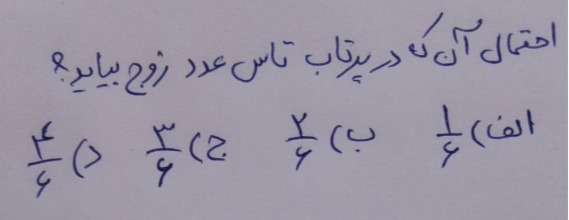 احتمال آن که در پرتاب تاس عدد زوج بیاید؟
الف) ۱/۶ ب) ۲/۶ ج) ۳/۶ د) ۴/۶